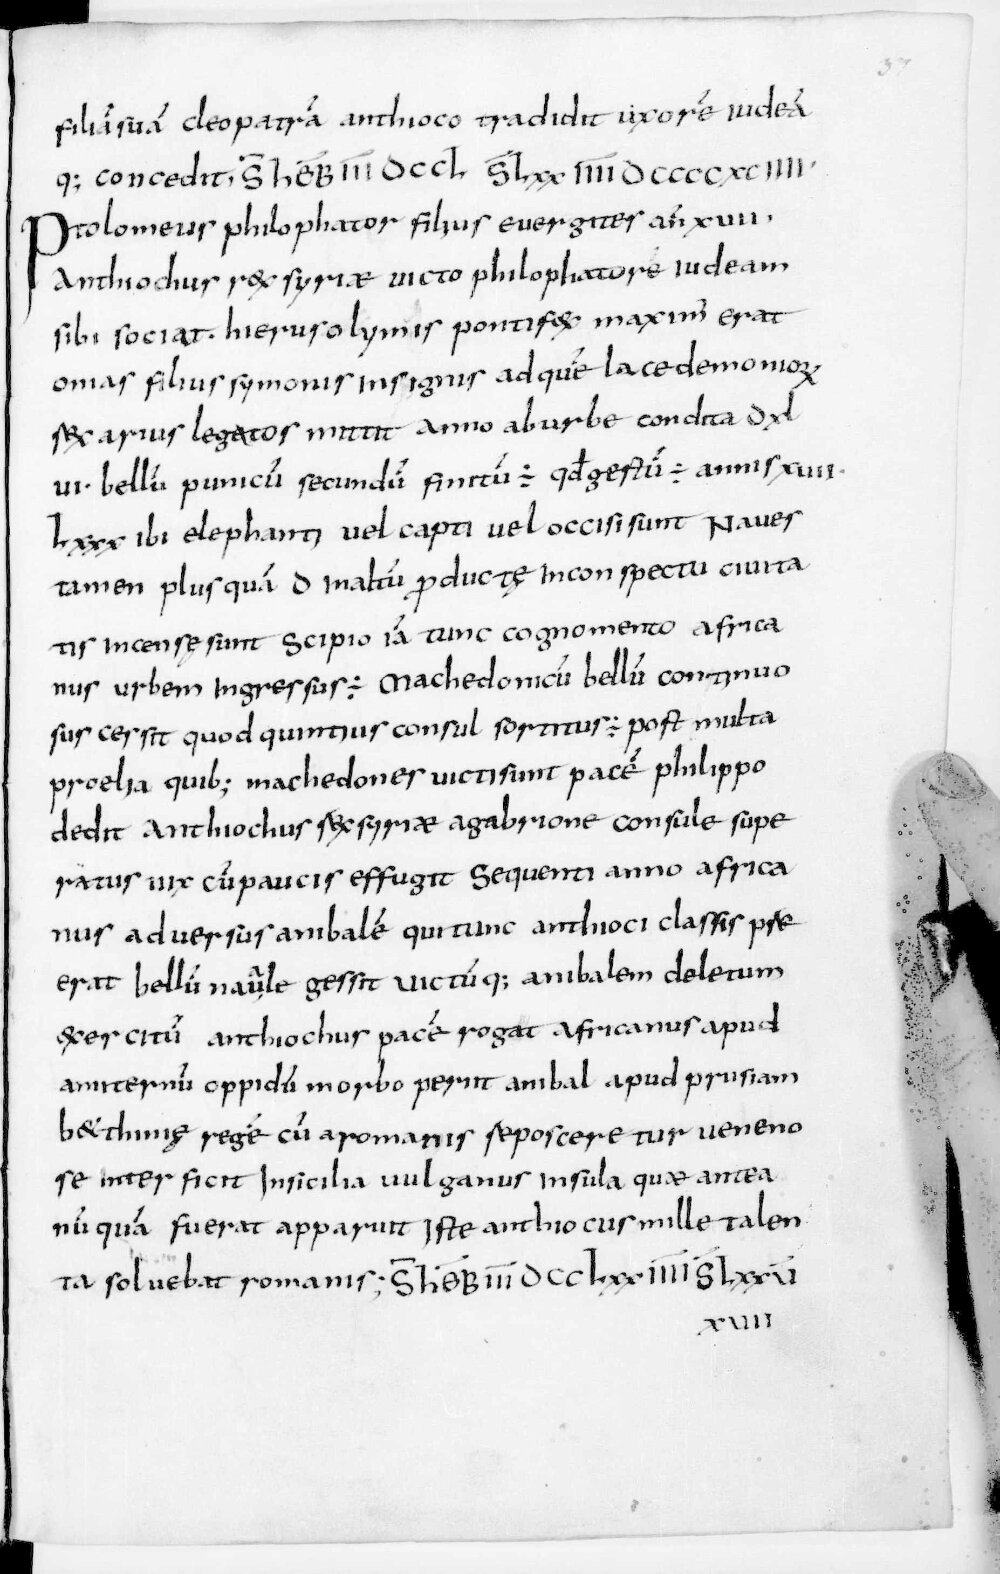 37
filiā suā cleopatrā anthioco tradidit uxorē iudeā
q; concedit, S̄ hēB̄ īīī DCCL S̄ Lxx IIII DCCCCXCIIII·
Ptolomeus philophator filius euergites añ xuii.
Anthiochus rex syriæ uicto philophatore iudeam
sibi sociat. hierusolymis pontifex maximū erat
onias filius symonis insignis ad quē lacedemonioꝝ
sex arius legatos mittit Anno ab urbe condita dxl
ui. bellū punicū secundū finitū ÷ qđ gestū ÷ annis xuiii.
Lxxx ibi elephanti uel capti uel occisi sunt Naues
tamen plus quā D inaltū ꝓductę inconspectu ciuita
tis incensę sunt Scipio iā tunc cognomento africa
nus urbem ingressus ÷ Machedonicū bellū continuo
suscersit quod quintius consul sortitus ÷ post multa
proelia quib; machedones uicti sunt pacē philippo
dedit Anthiochus sex syriæ agabrione consule supe
ratus uix cū paucis effugit Sequenti anno africa
nus aduersus anibalē qui tunc anthioci classis præ
erat bellū nauale gessit uictūq; anibalem deletum
exercitū anthiochus pacē rogat africanus apud
aniternū oppidū morbo perit anibal apud prusiam
bethinię regē cū a romanis seposceretur ueneno
se interficit Insicilia uulganus insula quæ antea
nūquā fuerat apparuit Iste anthiocus mille talen
ta soluebat romanis; S̄ hēB̄ īīī DCCLxx IIII S̄ Lxxui
xuiii